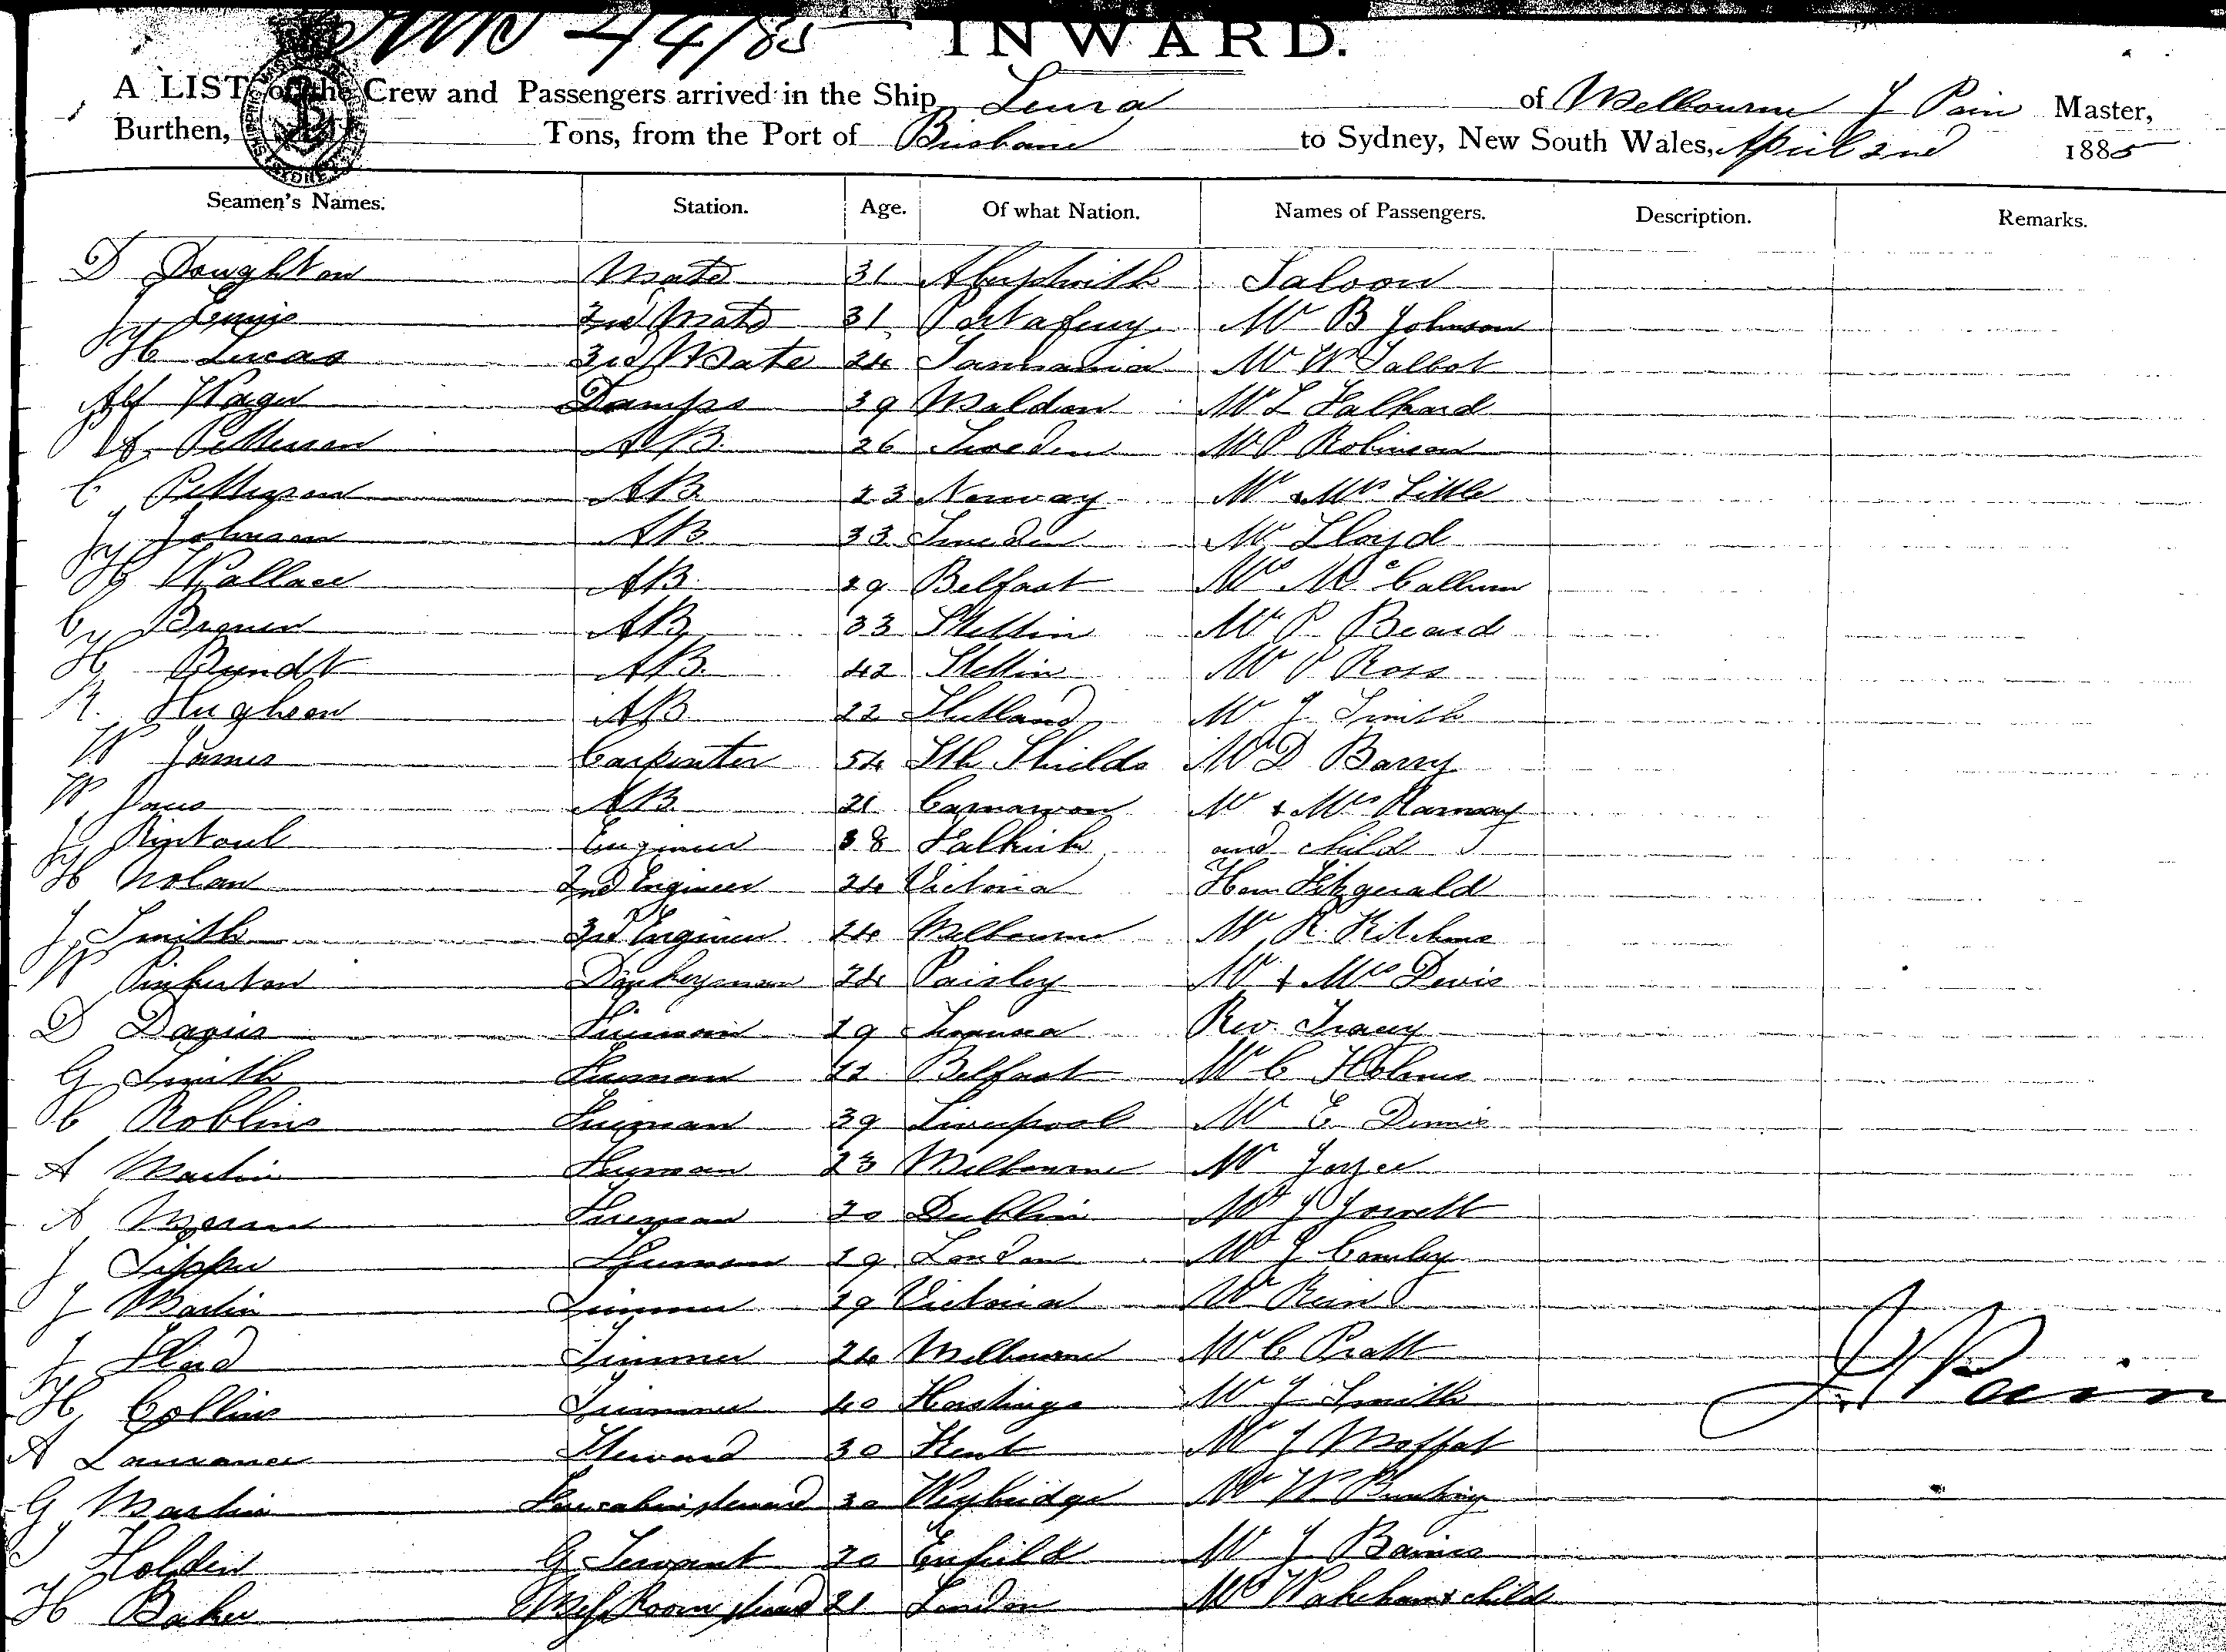 44/85 INWARD.
A LIST of the Crew and Passengers arrived in the Ship Leura of Melbourne J Pain Master,
Burthen, Tons, from the Port of Brisbane to Sydney, New South Wales, April 2nd 1885
Seamen's Names. Station. Age. Of what Nation. Names of Passengers. Description. Remarks.
D Doughton Mate 31 Saloon
J 2nd Mate 31 Mr B Johnson
H Lucas 3rd Mate 24 Tasmania Mr W Talbot
Alf Wager Lamps 39 Maldon Mr L
A. Petterson AB. 26 Sweden Mr P Robinson
C Petterson AB 23 Norway Mr & Mrs Little
J Johnson AB 33 Sweden Mr Lloyd
H Wallace AB. 29 Belfast Mrs McCallum
C AB 33 Stettin Mr P Beard
H Bundt AB. 42 Stettin Mr P Ross
R. Hughson AB 22 Shetland Mr J Smith
W James Carpenter 54 Sth Shields Mr D Barry
W AB 21 Carnarvon Mr & Mrs Ramsay
J Rintoul Engineer 38 Falkirk and child
H Nolan 2nd Engineer 24 Victoria Hon Fitzgerald
J Smith 3rd Engineer 24 Melbourne Mr R.
W Pinkerton Donkeyman 24 Paisley Mr & Mrs Devis
D Davies Fireman 29 Swansea Rev. Tracey
G Smith Fireman 22 Belfast Mr C Holmes
C Robbins Fireman 39 Liverpool Mr E Dennis
A Martin Fireman 23 Melbourne Mr Joyce
A Fireman 30 Dublin Mr J Jowett
J Tipper Fireman 29 London Mr J
J Martin Trimmer 29 Victoria Mr
J Trimmer 24 Melbourne Mr C Pratt
H Collins Trimmer 40 Hastings Mr J Smith
A Lawrance Steward 30 Kent Mr J Moffat
G Martin Fore cabin steward 30 Weybridge Mr W Bunting
J Holden G Servant 20 Enfield Mr J Baines
H Baker Mess Room steward 21 London Mrs Wakeham & child
J Pain